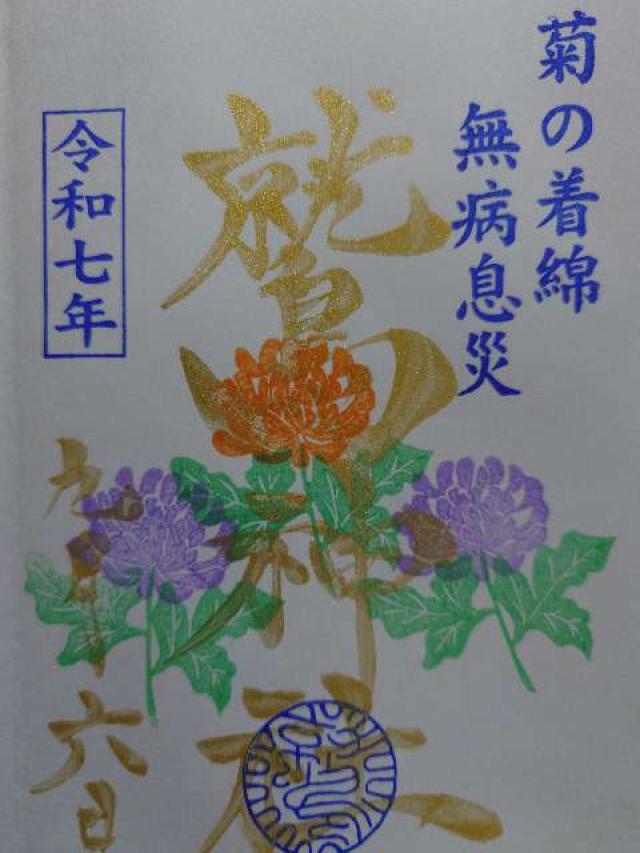 菊の着綿
無病息災
鷲神社
令和七年
九月六日